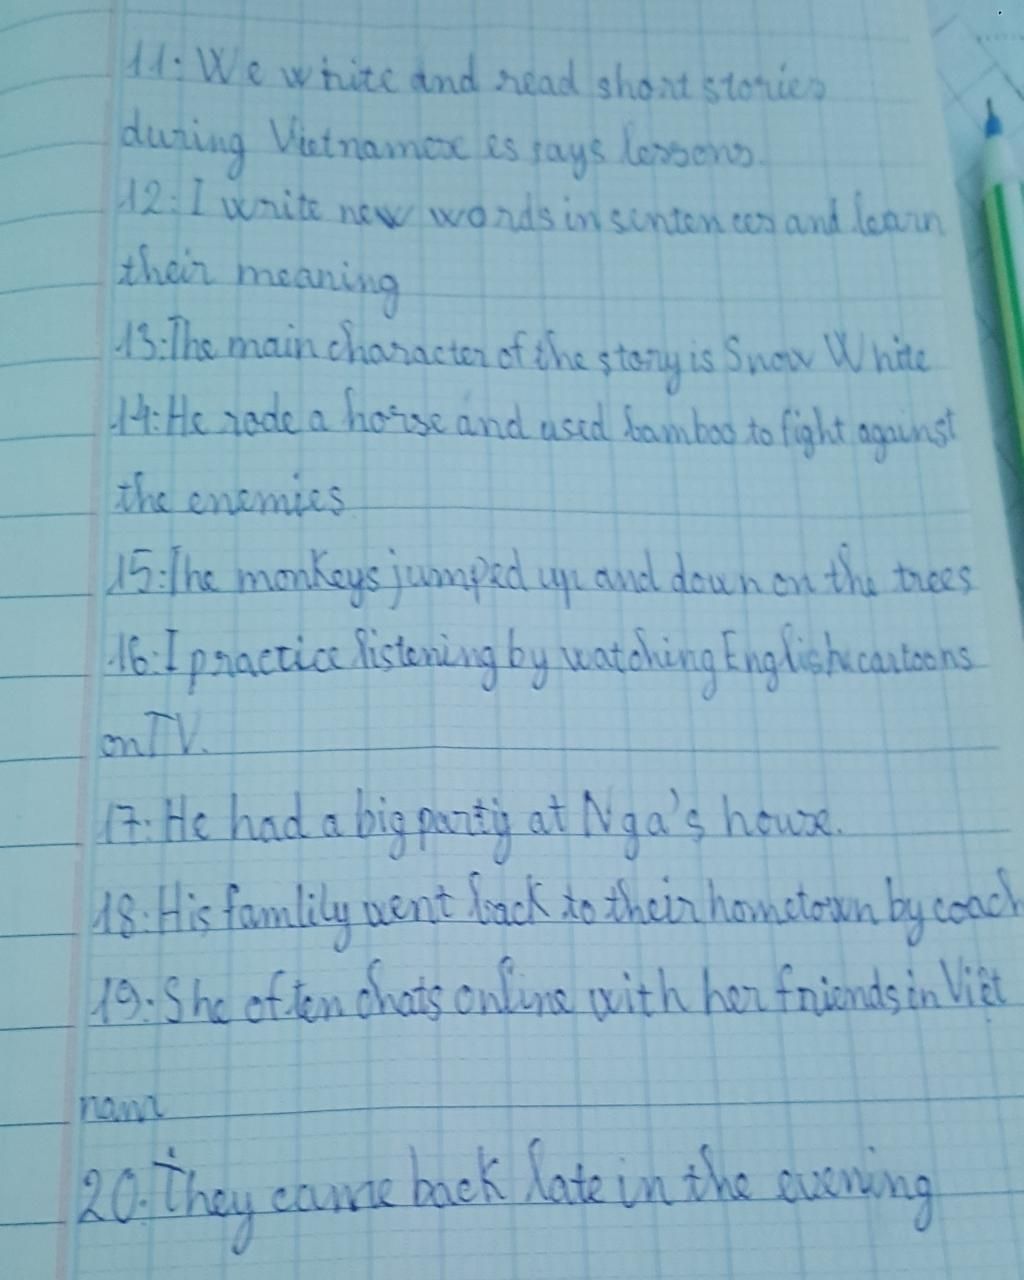 11: We write and read short stories
during Vietnamese essays lessons.
12: I write new words in sentences and learn
their meaning
13: The main character of the story is Snow White
14: He rode a horse and used bamboo to fight against
the enemies
15: The monkeys jumped up and down on the trees
16: I practice listening by watching English cartoons
on TV.
17: He had a big party at Nga's house.
18: His famlily went back to their hometown by coach
19: She often chats online with her friends in Việt
nam
20: They came back late in the evening